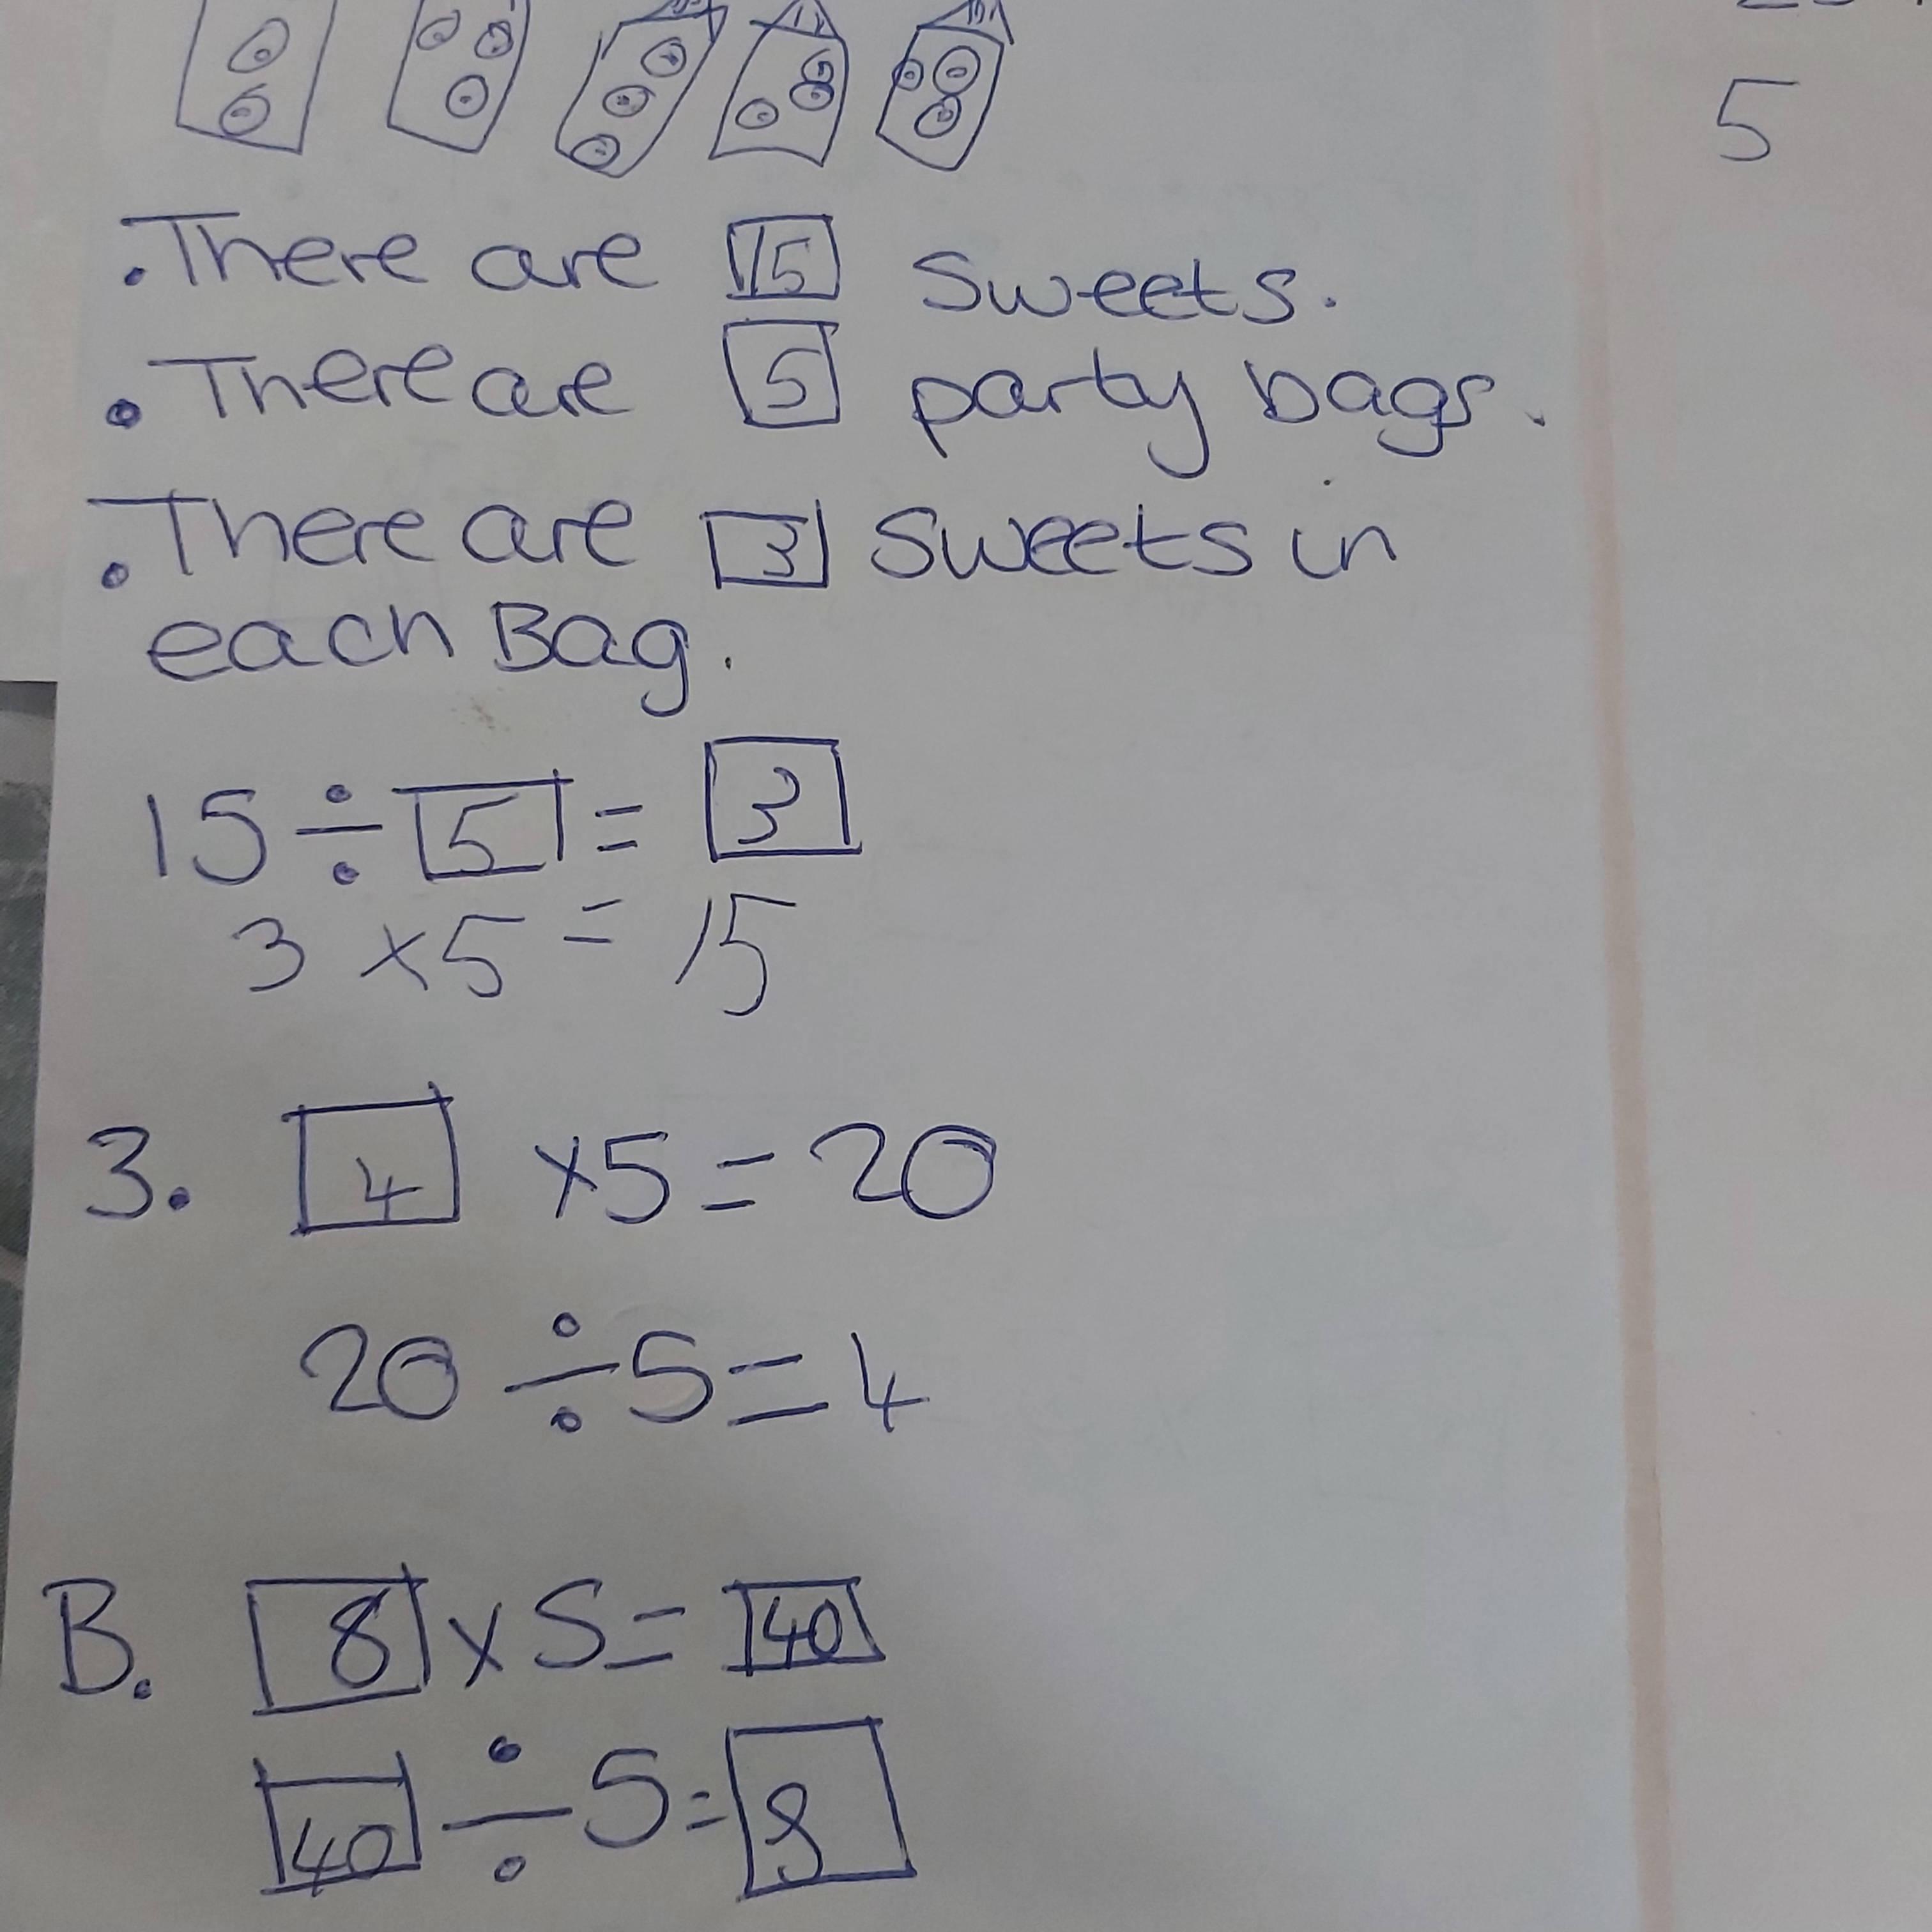 5
.There are 15 Sweets.
. There are 5 party bags.
.There are 3 Sweets in
each Bag.
15 ÷ 5 = 3
3 x5 = 15
3. 4 x5 = 20
20 ÷ 5 = 4
B. 8 x 5 = 40
40 ÷ 5 = 8